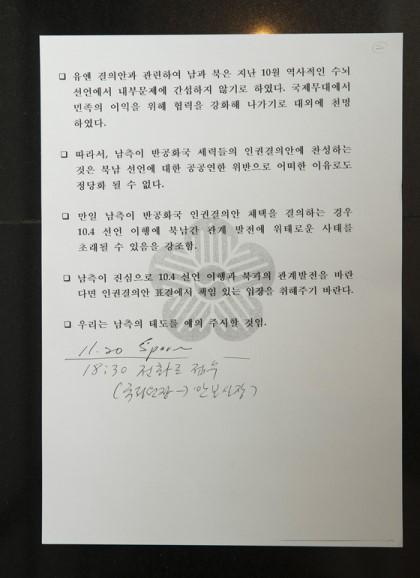 ❏ 유엔 결의안과 관련하여 남과 북은 지난 10월 역사적인 수뇌
선언에서 내부문제에 간섭하지 않기로 하였다. 국제무대에서
민족의 이익을 위해 협력을 강화해 나가기로 대외에 천명
하였다.
❏ 따라서, 남측이 반공화국 세력들의 인권결의안에 찬성하는
것은 북남 선언에 대한 공공연한 위반으로 어떠한 이유로도
정당화 될 수 없다.
❏ 만일 남측이 반공화국 인권결의안 채택을 결의하는 경우
10.4 선언 이행에 북남간 관계 발전에 위태로운 사태를
초래될 수 있음을 강조함.
❏ 남측이 진심으로 10.4 선언 이행과 북과의 관계발전을 바란
다면 인권결의안 표결에서 책임 있는 입장을 취해주기 바란다.
❏ 우리는 남측의 태도를 예의 주시할 것임.
11.20
18:30 전화로 접수
(국정원장→안보실장)